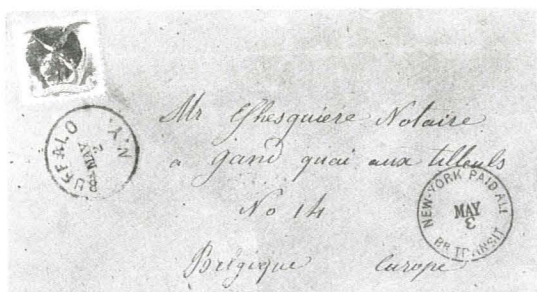 BUFFALO N.Y.
MAY
2
Mr Ghesquiere Notaire
a gand quai aux tilleuls
No 14
Belgique Europe
NEW-YORK PAID ALL
MAY
3
BR. TRANSIT